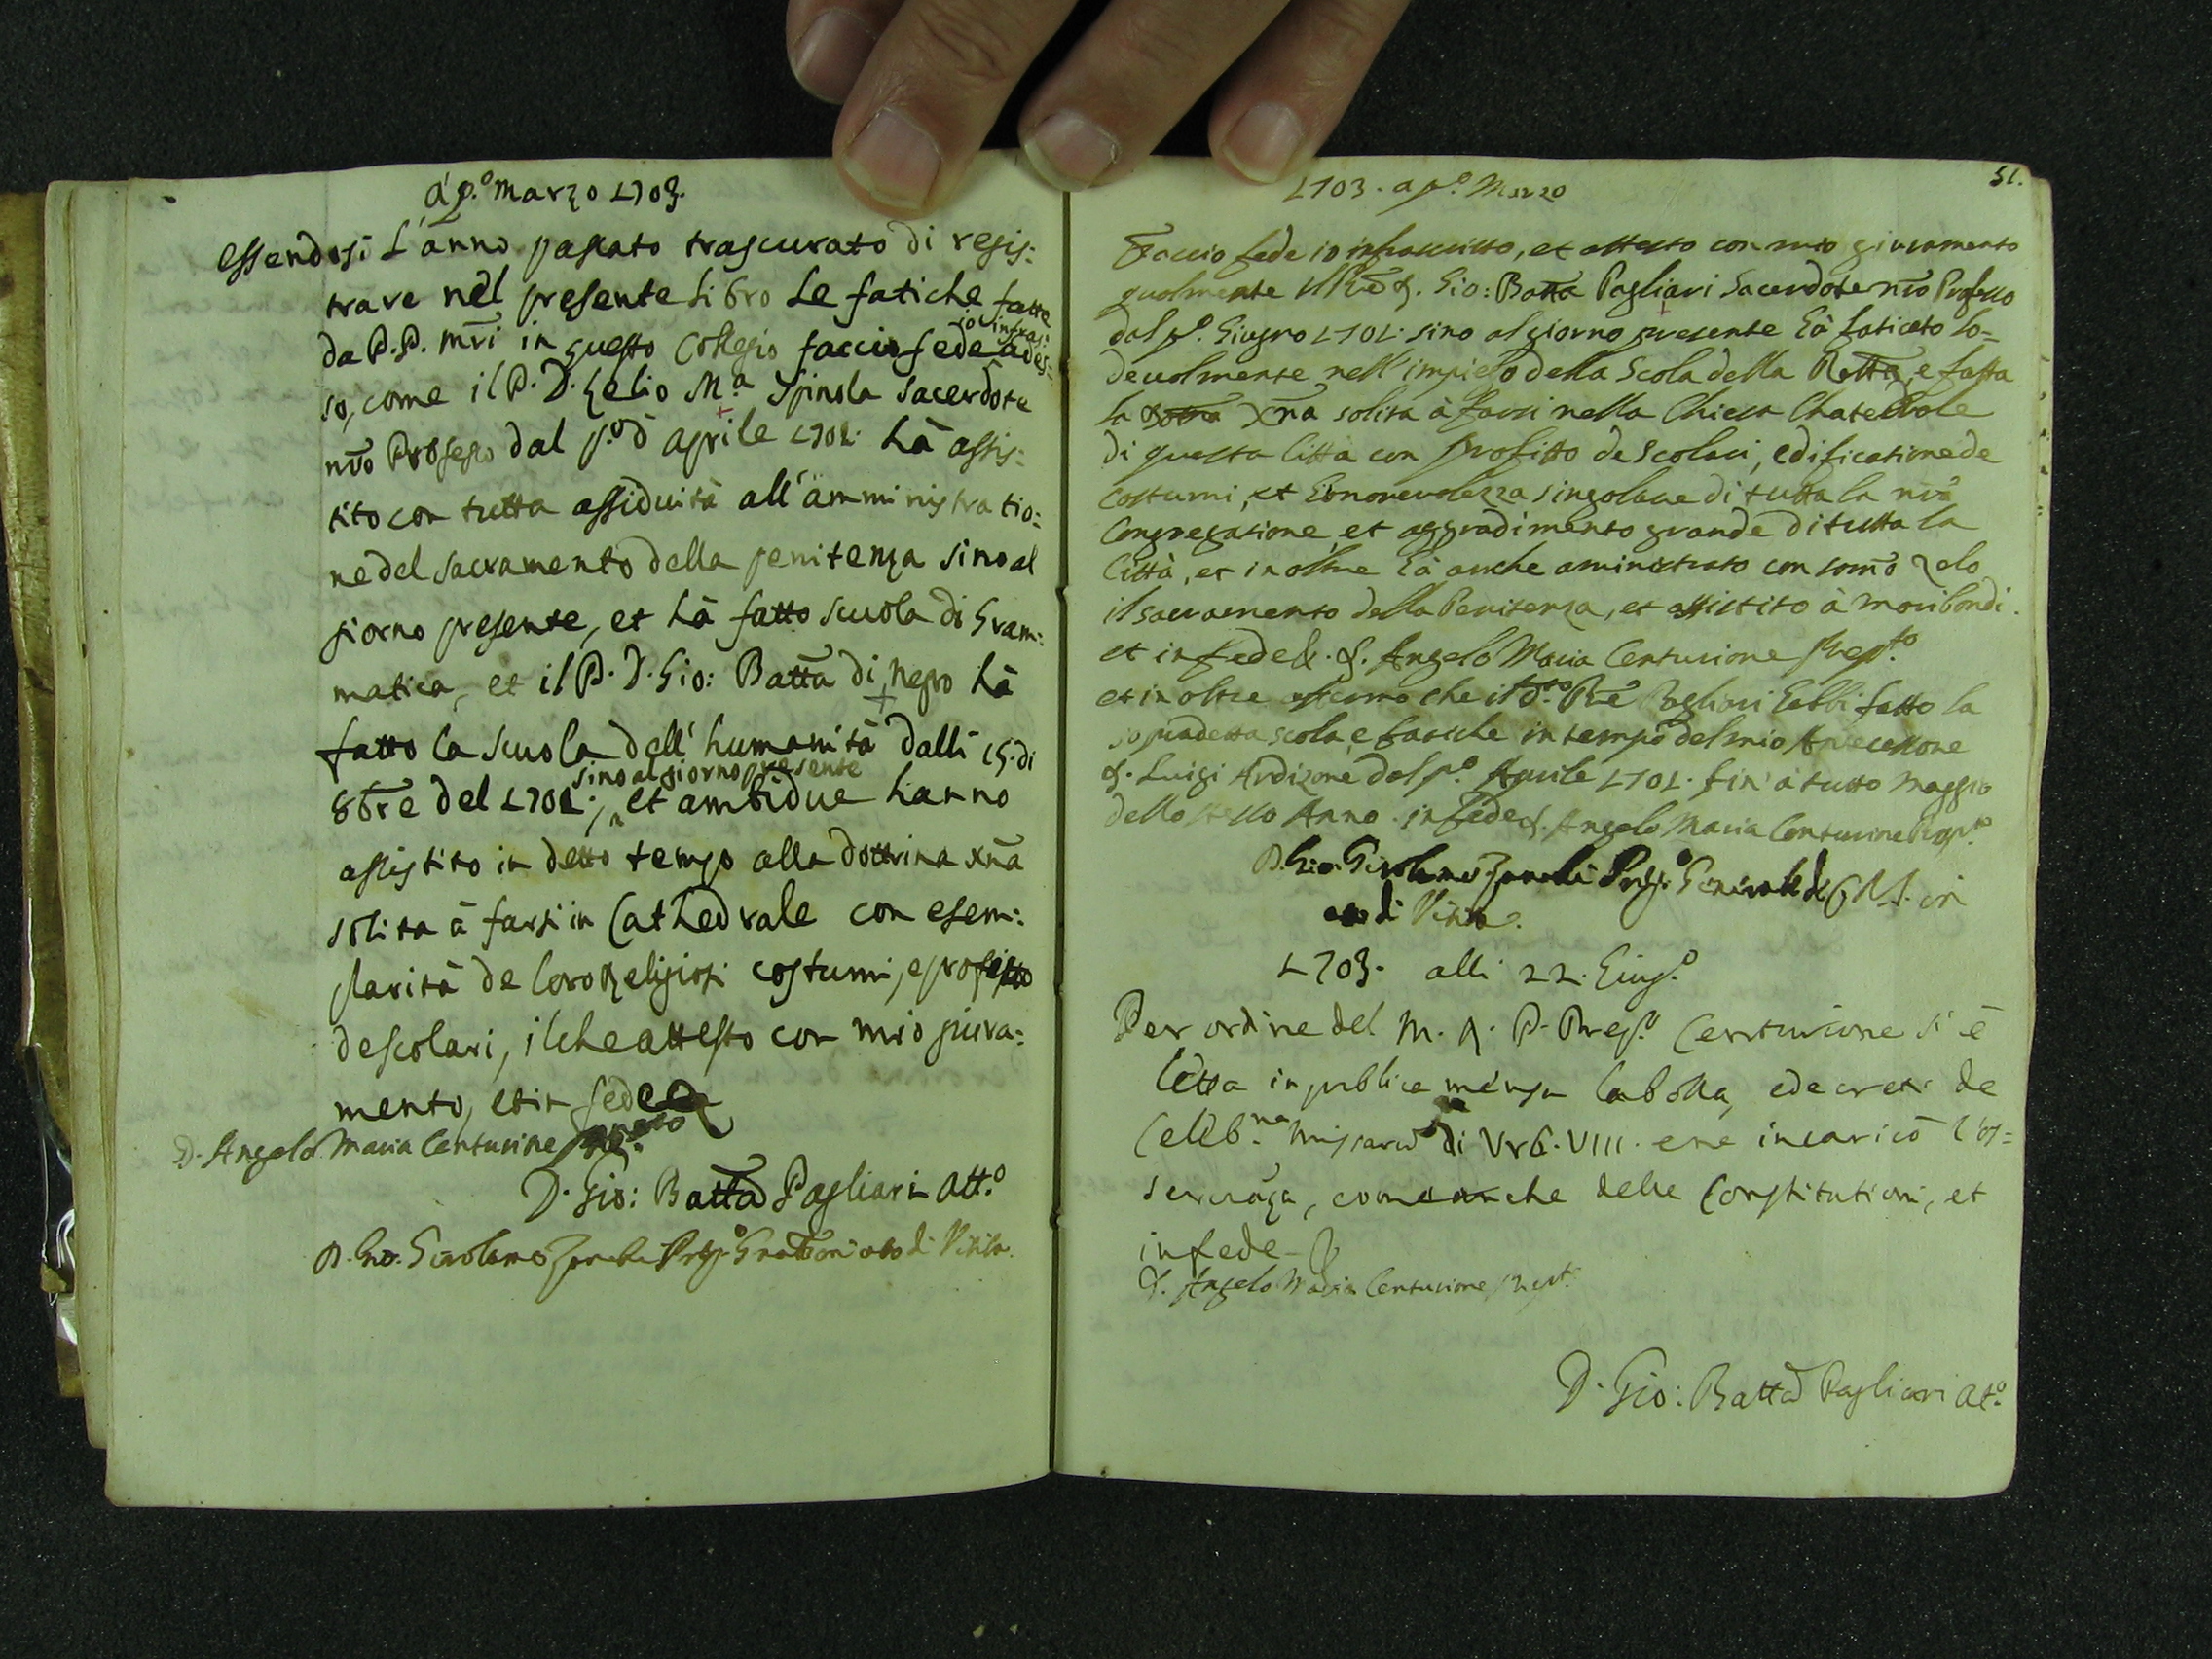 à p.º Marzo 1703.
Essendosi l'anno passato trascurato di regis:
trare nel presente Libro Le fatiche fatte
da P.P. nri in questo Collegio faccio fede io infras:
so, come il P. D. Lelio M.ª Spinola sacerdote
nro Professo dal p.º d'aprile 1702. hà assis:
tito con tutta assiduità all'amministratio:
ne del sacramento della penitenza sino al
giorno presente, et hà fatto scuola di Gram:
matica, et il P. D. Gio: Batta di Negro hà
fatto la scuola dell'humanità dalli 15. di
sino al giorno presente
8bre del 1702., et ambidue hanno
assistito in detto tempo alla dottrina xna
solita à farsi in Cathedrale con esem:
plarità de loro Religiosi costumi, e profitto
de scolari, il che attesto con mio giura:
mento, et in fede
D. Angelo Maria Centurione
D. Gio: Batta Pagliari Att.º
D. Gio. Girolamo Zanchi Prep. Gnale in atto di Visita.
51.
1703. a p.º Marzo
Faccio fede io infrascritto, et attesto con mio giuramento
qualmente il Pre D. Gio: Batta Pagliari Sacerdote nro Professo
dal p.º Giugno 1702. sino al giorno presente hà faticato lo=
devolmente nell'impiego della Scola della Rettca, e fatta
la Xna solita à farsi nella Chiesa
di questa Città con profitto de Scolari, edificatione de
costumi, et honorevolezza singolare di tutta la nra
Congregatione, et aggradimento grande di tutta la
Città, et in oltre hà anche aministrato con sommo zelo
il sacramento della Penitenza, et assistito à moribondi.
et in fede &. D. Angelo Maria Centurione Prep.to
et in oltre affermo che il d.to Pre Pagliari habbi fatto la
sopradetta scola, e fatiche in tempo del mio Antecessore
D. Luigi Ardizone dal p.º Aprile 1702. fin'à tutto Maggio
dello stesso Anno. in fede D. Angelo Maria Centurione Prep.to
D. Gio. Girolamo Zanchi Prep. Generale in
atto di Visita.
1703. alli 22. Giug.º
Per ordine del M. R. P. Prep.º Centurione si è
letta in publica mensa la bolla, e decreti de
Celeb.ne missarum di Urb. VIII. e ne incaricò l'os=
servãza, come anche delle Constitutioni, et
in fede
D. Angelo Maria Centurione Prep.t
D. Gio: Batta Pagliari At.º